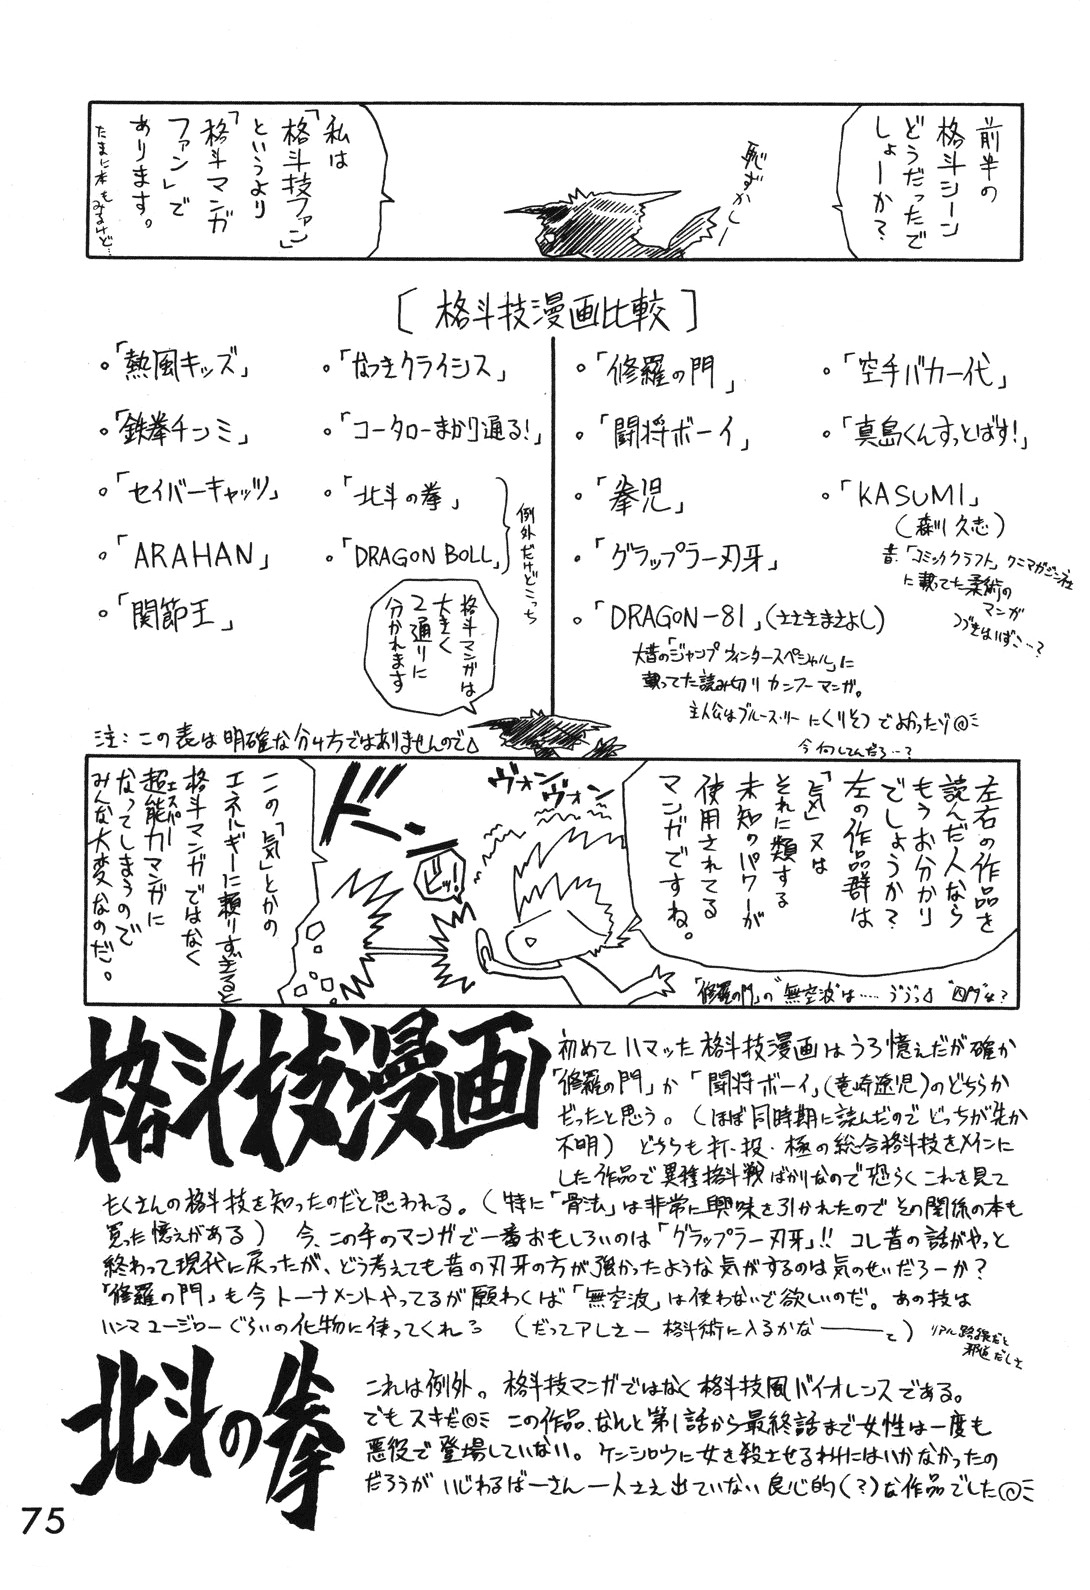 前半の
格斗シーン
どうだったで
しょーか?
恥ずかしー
私は
「格斗技ファン」
というより
「格斗マンガ
ファン」で
あります。
たまに本もみるけど…
[格斗技漫画比較]
・「修羅の門」
・「闘将ボーイ」
・「拳児」
・「グラップラー刃牙」
・「DRAGON-81」(ささきまさよし)
大昔の「ジャンプウィンタースペシャル」に
載ってた読み切りカンフーマンガ。
主人公はブルース・リーにくりそつでよかったゾ
今何してんだろ…?
・「空手バカ一代」
・「真島くんすっとばす!」
・「KASUMI」
(森川久志)
昔、「コミッククラフト」クニマガジン社
に載ってた柔術の
マンガ
つづきはいずこ…?
・「なつきクライシス」
・「コータローまかり通る!」
・「北斗の拳」
・「DRAGON BOLL」
例外だけどこっち
・「熱風キッズ」
・「鉄拳チンミ」
・「セイバーキャッツ」
・「ARAHAN」
・「関節王」
格斗マンガは
大きく
2通りに
分かれます
注:この表は明確な分け方ではありませんので
左右の作品を
読んだ人なら
もうお分かり
でしょうか?
左の作品群は
「気」又は
それに類する
未知のパワーが
使用されてる
マンガですね。
「修羅の門」の“無空波”は……
ヴォン
ヴォン
ドン
ビッ!
この「気」とかの
エネルギーに頼りすぎると
格斗マンガではなく
超能力マンガに
エスパー
なってしまうので
みんな大変なのだ。
格斗技漫画
初めてハマッた格斗技漫画はうろ憶えだが確か
「修羅の門」か「闘将ボーイ」(竜崎遼児)のどちらか
だったと思う。(ほぼ同時期に読んだのでどっちが先か
不明) どちらも打・投・極の総合格斗技をメインに
した作品で異種格斗戦ばかりなので恐らくこれを見て
たくさんの格斗技を知ったのだと思われる。(特に「骨法」は非常に興味を引かれたのでその関係の本も
買った憶えがある) 今、この手のマンガで一番おもしろいのは「グラップラー刃牙」!! コレ昔の話がやっと
終わって現代に戻ったが、どう考えても昔の刃牙の方が強かったような気がするのは気のせいだろーか?
「修羅の門」も今トーナメントやってるが願わくば「無空波」は使わないで欲しいのだ。あの技は
ハンマユージローぐらいの化物に使ってくれろ (だってアレさー格斗術に入るかな――と)
リアル路線だと
邪道だしさ
北斗の拳
これは例外。格斗技マンガではなく格斗技風バイオレンスである。
でもスキだ この作品、なんと第1話から最終話まで女性は一度も
悪役で登場していない。ケンシロウに女を殺させるわけにはいかなかったの
だろうが いじわるばーさん一人さえ出ていない良心的(?)な作品でした
75